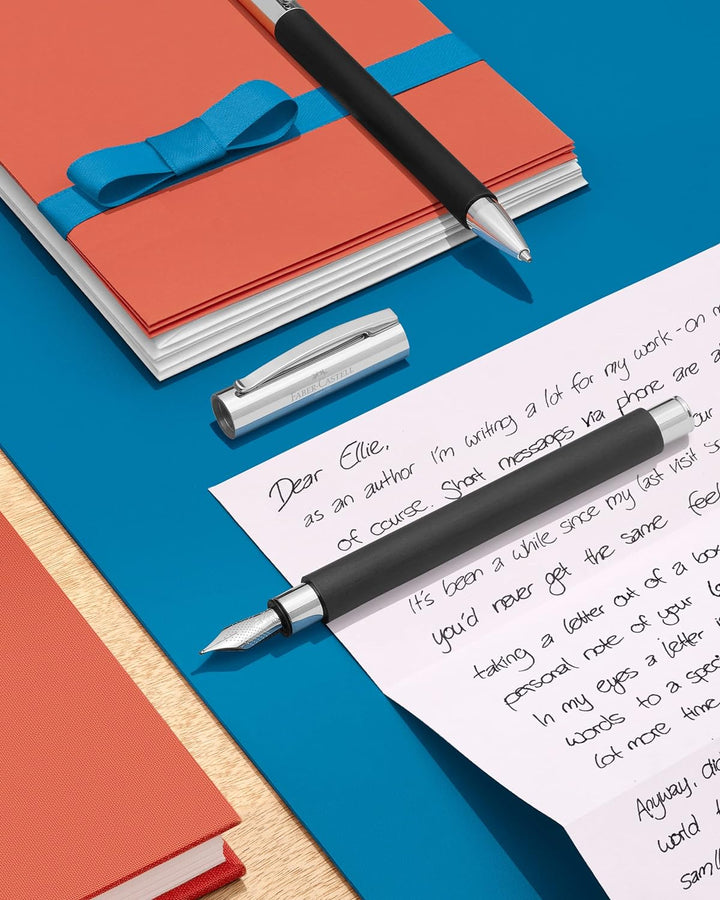 FABER-CASTELL
Dear Ellie,
as an author I'm writing a lot for my work - on
of course. Short messages via phone are
It's been a while since my last visit
you'd never get the same feel
taking a letter out of a
personal note of your
In my eyes a letter
words to a
lot more time
Anyway,
world